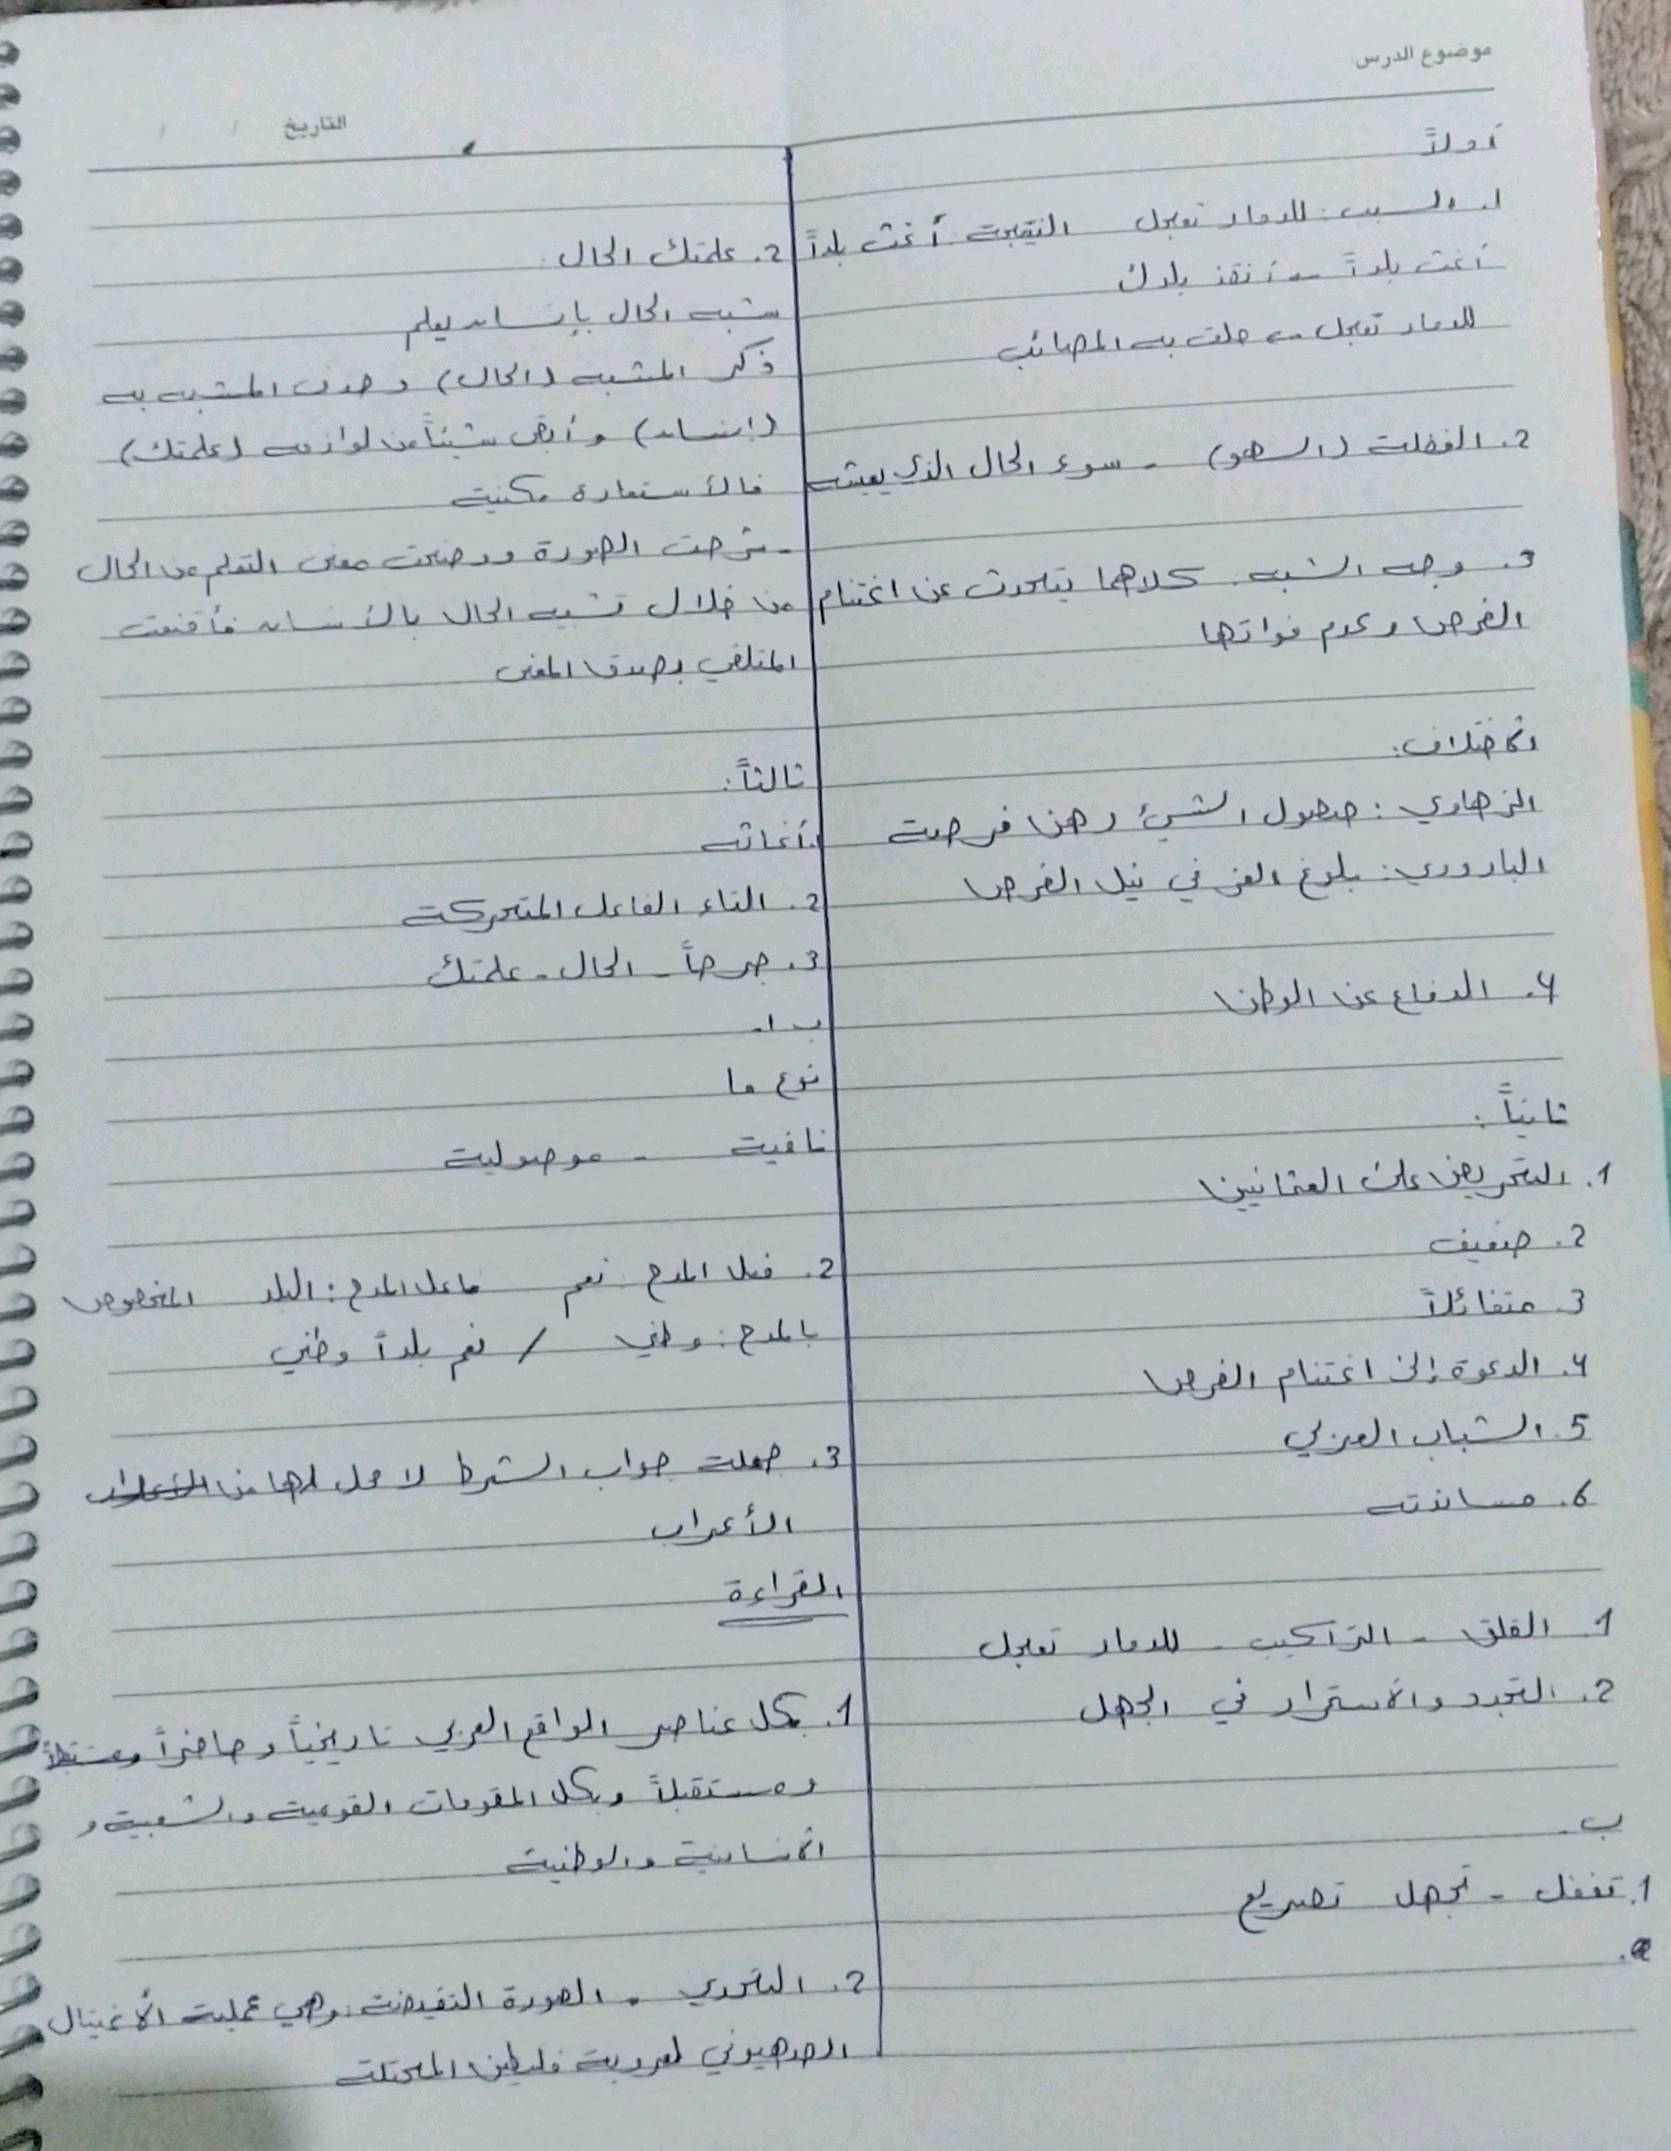 موضوع الدرس
التاريخ / /
أولاً
1. السبب: للدمار تعجل النتيجة: أغث بلداً
أغث بلداً → أنقذ بلدك
للدمار تعجل → حلت به المصائب
2. الغفلة (السهو) - سوء الحال الذي يعيشه
3. وجه الشبه: كلاهما يتحدث عن اغتنام
الفرص وعدم فواتها
الاختلاف:
الزهاوي: حصول الشيء رهن فرصة
البارودي: بلوغ العز في نيل الفرص
4. الدفاع عن الوطن
ثانياً:
1. التحريض على العثمانيين
2. ضعيف
3. متفائلاً
4. الدعوة إلى اغتنام الفرص
5. الشباب العربي
6. مساندته
1. القلق - التراكيب - للدمار تعجل
2. التجدد والاستمرار في الجهل
ب.
1. تغفل - تجهل تصريع
2. علمتك الحال
شبه الحال بإنسان يعلم
ذكر المشبه (الحال) وحذف المشبه به
(إنسان) وأبقى شيئاً من لوازمه (علمتك)
فالأستعارة مكنية
- شرحت الصورة ووضحت معنى التعلم من الحال
من خلال تشبيه الحال بالأنسان فأقنعت
المتلقي بصدق المعنى
ثالثاً:
1. أغاثه
2. التاء الفاعل المتحركة
3. جرحاً - الحال - علمتك
ب 1.
نوع ما
نافية - موصولية
2. فعل المدح: نعم فاعل المدح: البلد المخصوص
بالمدح: وطني / نعم بلداً وطني
3. جملة جواب الشرط لا محل لها من
الأعراب
القراءة
1. بكل عناصر الواقع العربي تاريخياً وحاضراً
ومستقبلاً وبكل المقومات القومية والشعبية و
الانسانية والوطنية
2. التحدي - الصورة النقيضة وهي عملية الأغتيال
الصهيوني لعروبة فلسطين المحتلة